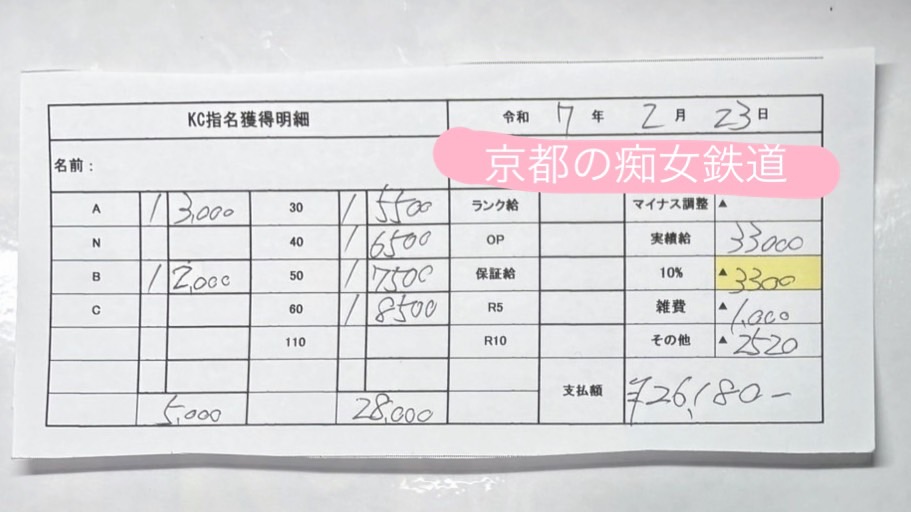 KC指名獲得明細 令和 7 年 2 月 23 日
名前：
京都の痴女鉄道
A 1 3,000 30 1 5500 ランク給 マイナス調整 ▲
N 40 1 6500 OP 実績給 33000
B 1 2,000 50 1 7500 保証給 10% ▲ 3300
C 60 1 8500 R5 雑費 ▲ 1,000
110 R10 その他 ▲ 2520
支払額 ¥26,180-
5,000 28,000